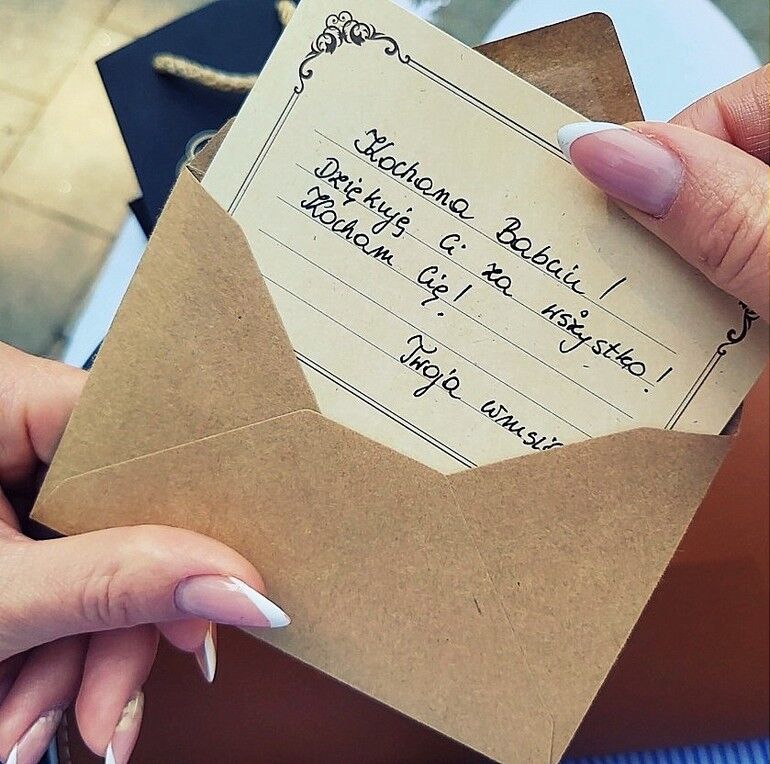 Kochana Babciu!
Dziękuję Ci za wszystko!
Kocham Cię!
Twoja